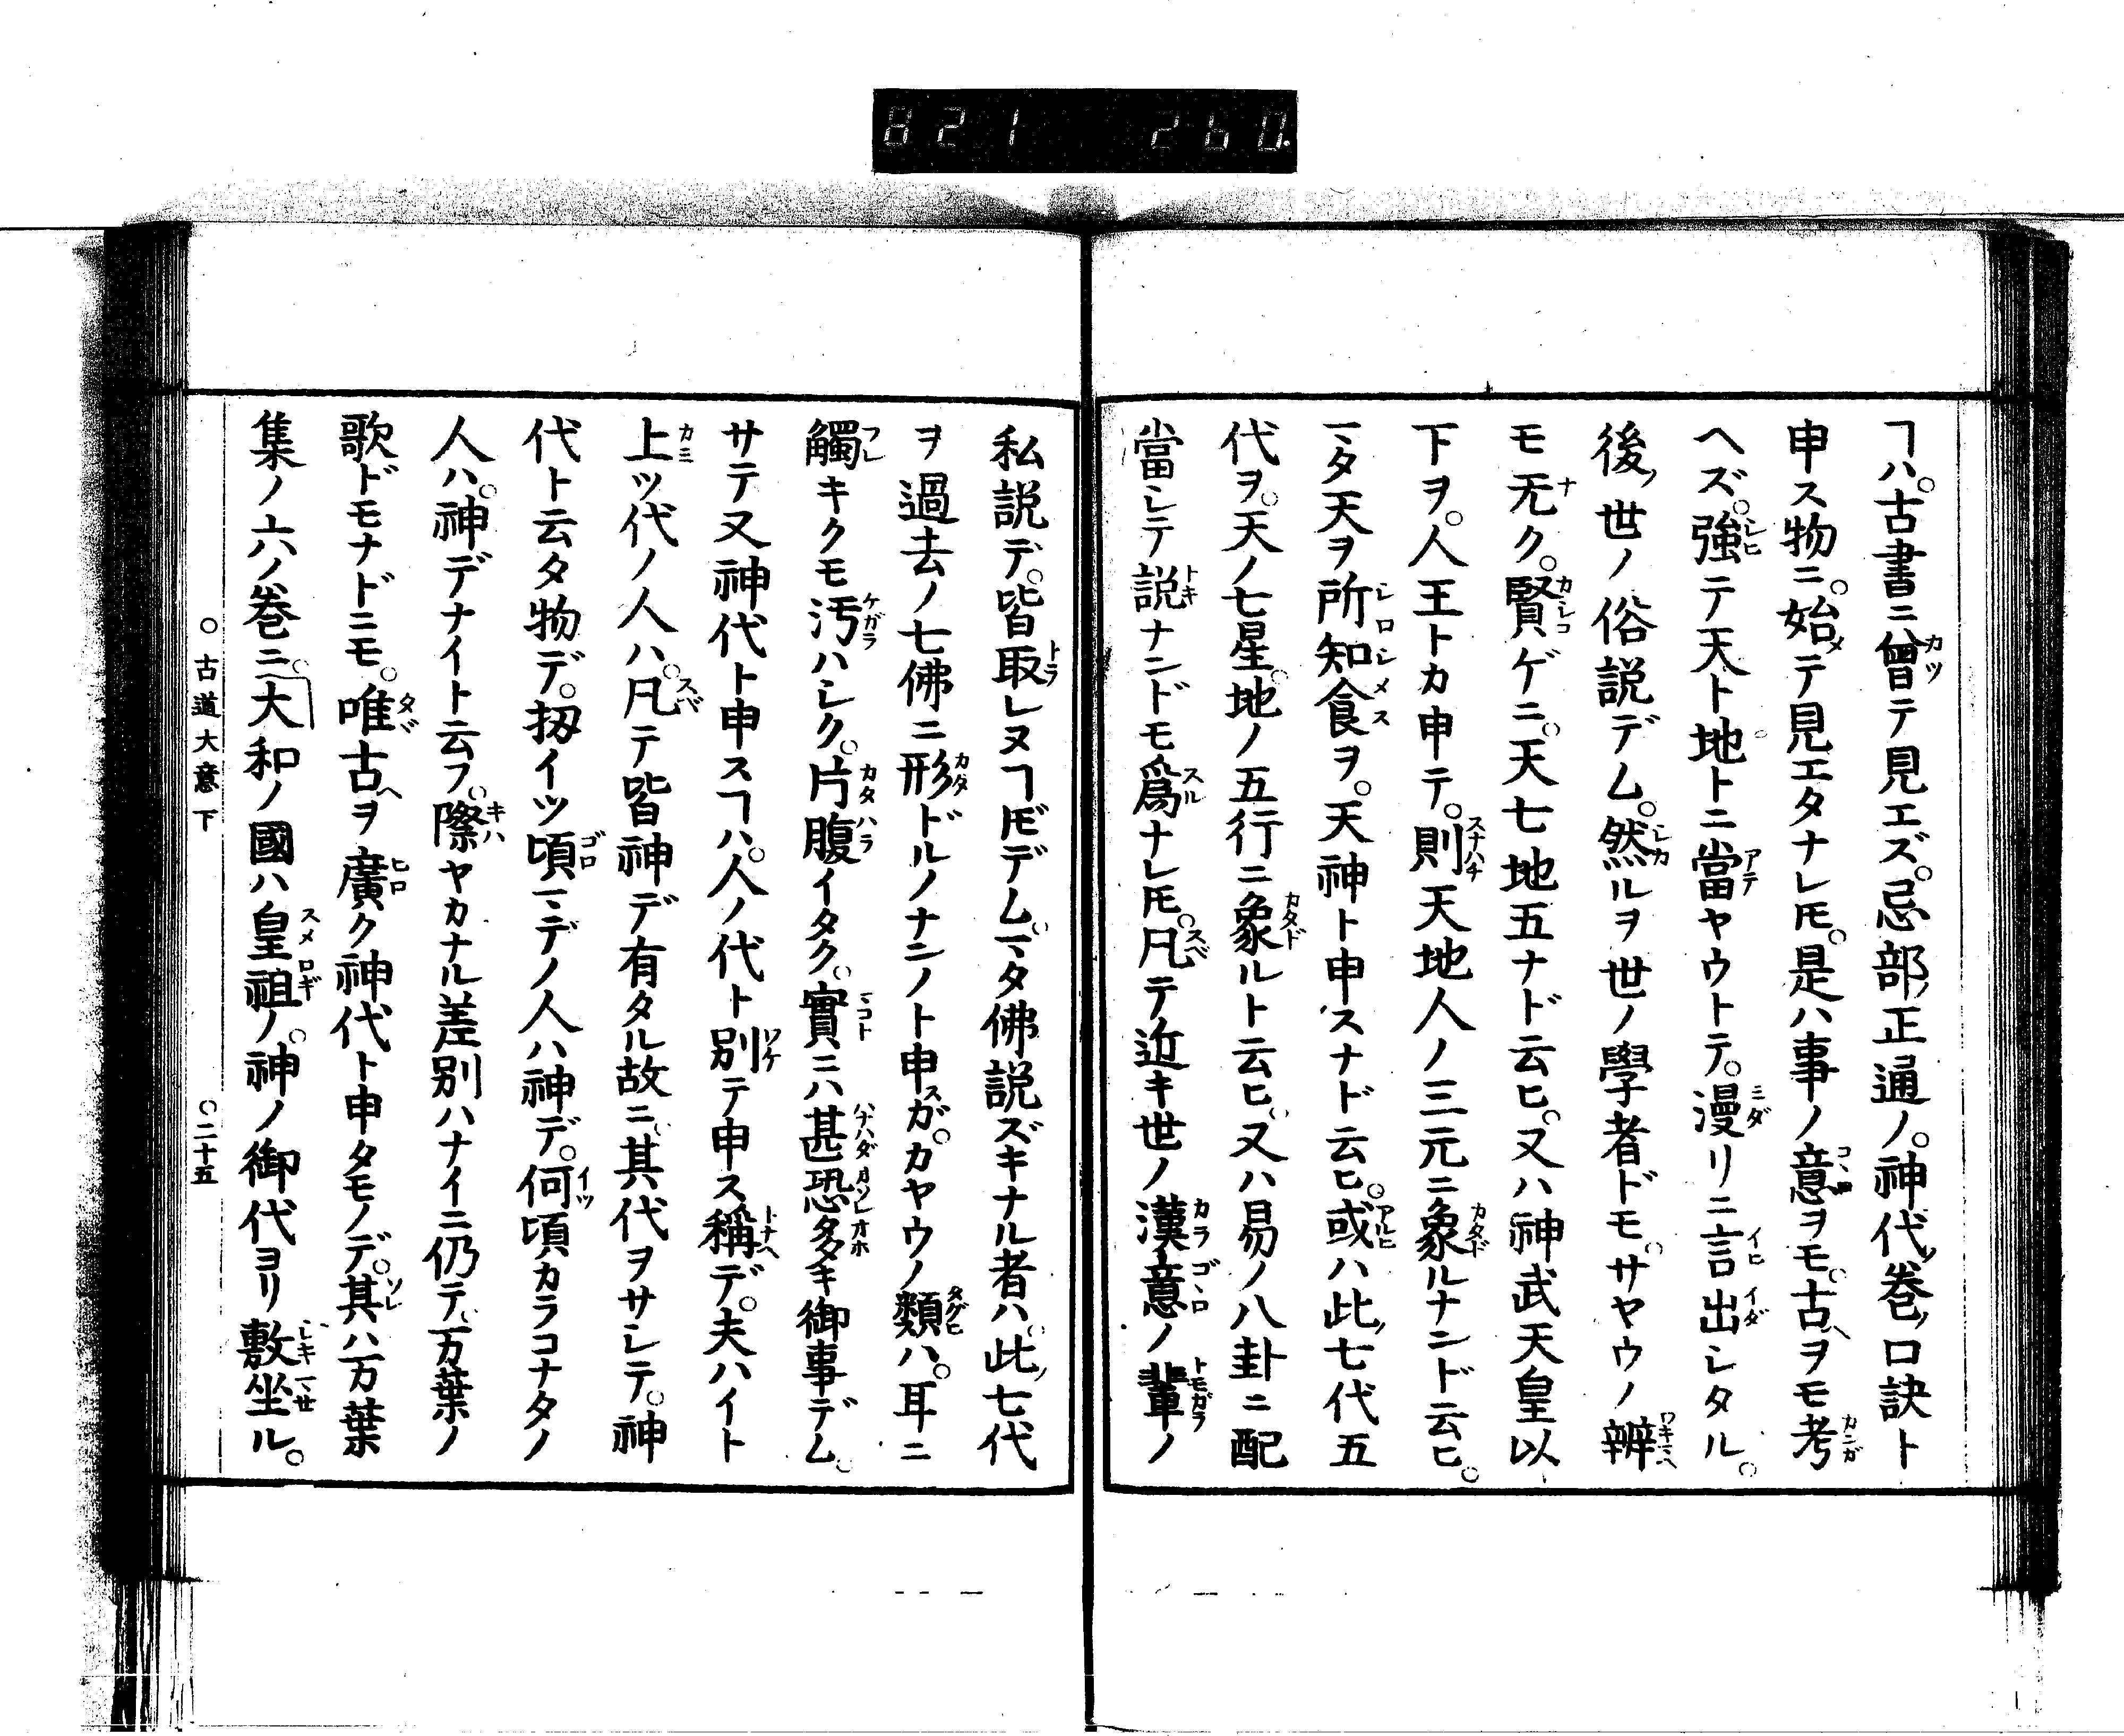 821 260.
ヿハ。古書ニ曾テ見エズ。忌部ノ正通ノ。神代ノ巻ノ口訣ト
申ス物ニ。始メテ見エタナレ𪜈。是ハ事ノ意ヲモ。古ヘヲモ考
ヘズ。強テ天ト地トニ當ヤウトテ。漫リニ言出シタル。
後ノ世ノ俗説デム。然ルヲ世ノ學者ドモ。サヤウノ辨
モ无ク。賢ゲニ。天七地五ナド云ヒ。又ハ神武天皇以
下ヲ。人王トカ申テ。則天地人ノ三元ニ象ルナンド云ヒ。
マタ天ヲ所知食ヲ。天神ト申スナド云ヒ。或ハ此ノ七代五
代ヲ。天ノ七星。地ノ五行ニ象ルト云ヒ。又ハ易ノ八卦ニ配
當シテ説ナンドモ爲ナレ𪜈。凡テ近キ世ノ漢意ノ輩ノ
私説デ。皆取レヌヿ𪜈デム。マタ佛説ズキナル者ハ。此ノ七代
ヲ過去ノ七佛ニ形ドルノナンノト申スガ。カヤウノ類ハ。耳ニ
觸キクモ汚ハシク。片腹イタク。實ニハ甚恐多キ御事デム。
サテ又神代ト申スヿハ。人ノ代ト別テ申ス稱デ。夫ハイト
上ツ代ノ人ハ。凡テ皆神デ有タル故ニ。其代ヲサシテ。神
代ト云タ物デ。扨イツ頃マデノ人ハ神デ。何頃カラコナタノ
人ハ。神デナイト云フ。際ヤカナル差別ハナイニ仍テ。万葉ノ
歌ドモナドニモ。唯古ヘヲ廣ク神代ト申タモノデ。其ハ万葉
集ノ六ノ巻ニ。「大和ノ國ハ皇祖ノ。神ノ御代ヨリ敷坐ル。
○古道大意下 ○二十五